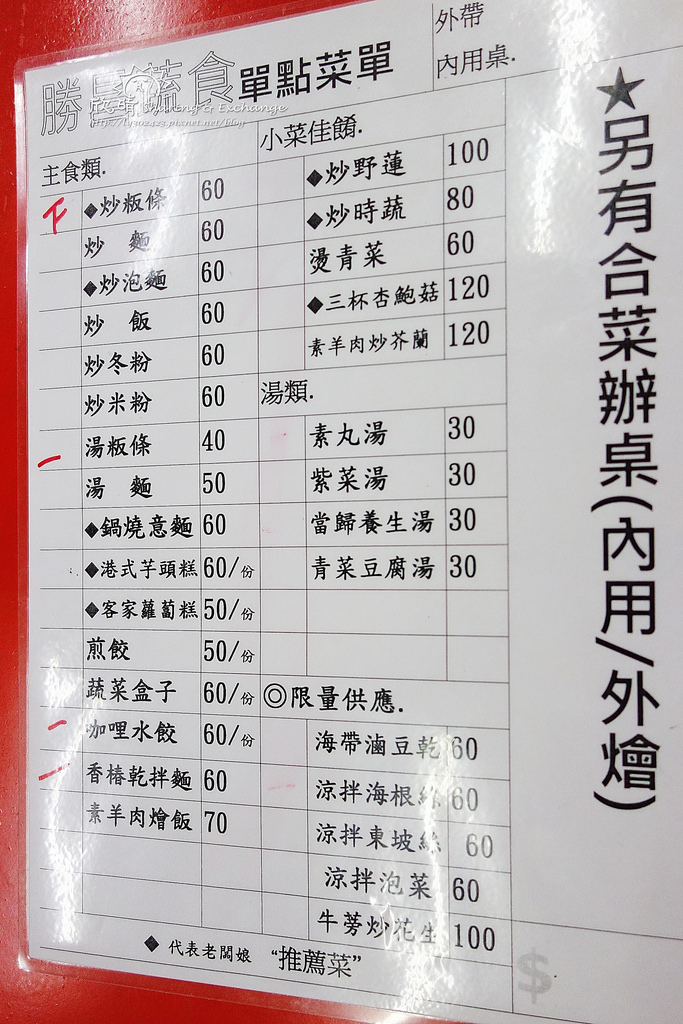 勝昌蔬食單點菜單
Sharing & Exchange
外帶
內用桌.
主食類.
下
◆炒粄條 60
炒 麵 60
◆炒泡麵 60
炒 飯 60
炒冬粉 60
炒米粉 60
湯粄條 40
湯 麵 50
◆鍋燒意麵 60
◆港式芋頭糕 60/份
◆客家蘿蔔糕 50/份
煎餃 50/份
蔬菜盒子 60/份
咖哩水餃 60/份
香椿乾拌麵 60
素羊肉燴飯 70
小菜佳餚.
◆炒野蓮 100
◆炒時蔬 80
燙青菜 60
◆三杯杏鮑菇 120
素羊肉炒芥蘭 120
湯類.
素丸湯 30
紫菜湯 30
當歸養生湯 30
青菜豆腐湯 30
◎限量供應.
海帶滷豆乾 60
涼拌海根絲 60
涼拌東坡絲 60
涼拌泡菜 60
牛蒡炒花生 100
◆ 代表老闆娘 “推薦菜”
★另有合菜辦桌(內用/外燴)
$